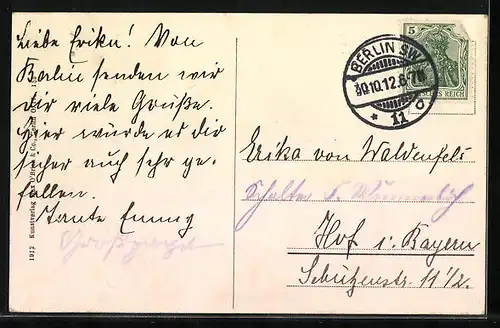 Liebe Erika! Von
Berlin senden wir
dir viele Grüße.
Hier würde es dir
sicher auch sehr ge-
fallen.
Tante Emmy
BERLIN SW
30.10.12.6-7N
* 11 d
5
DEUTSCHES REICH
Erika von Waldenfels
Hof i. Bayern
Schützenstr. 11 1/2.
1912 Kunstverlag